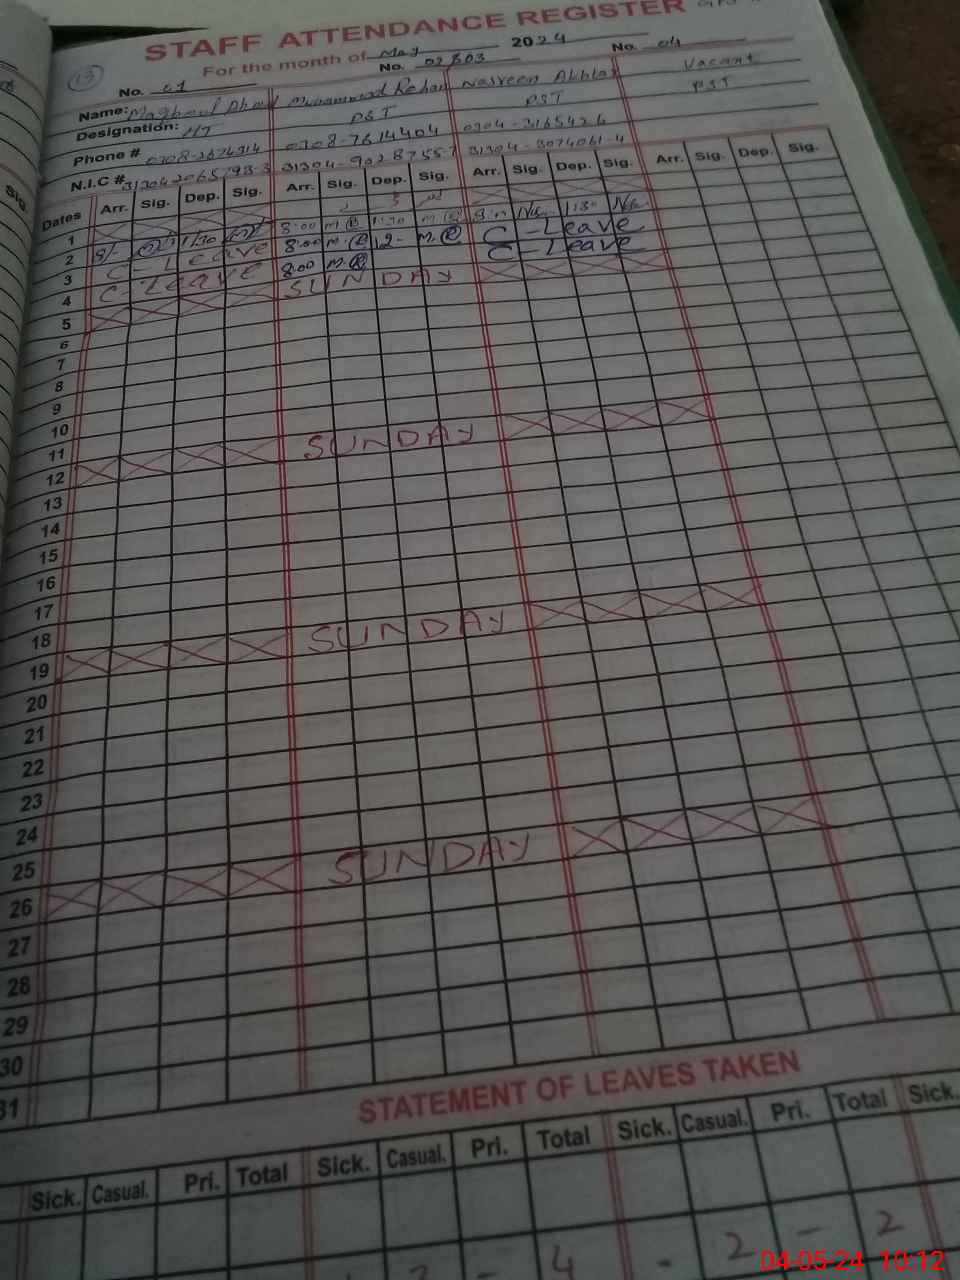 STAFF ATTENDANCE REGISTER
For the month of May 2024
13
No. 01 No. 02 & 03 No. 04
Name: Maqbool Ahmad Muhammad Rehan Nasreen Akhtar Vacant
Designation: HT PST PST PST
Phone # 0308-2674314 0308-7614404 0304-3165426
N.I.C # 31304-9028755-7 31304-3074061-4
Dates Arr. Sig. Dep. Sig. Arr. Sig. Dep. Sig. Arr. Sig. Dep. Sig. Arr. Sig. Dep. Sig.
1
2 8/- 1/30 8:00 M.R 1:30 M.R 1:30
3 C-Leave 8:00 M.R 12- M.R C-Leave
4 C-LEAVE 8:00 M.R C-Leave
5 SUNDAY
6
7
8
9
10
11
12 SUNDAY
13
14
15
16
17
18
19 SUNDAY
20
21
22
23
24
25
26 SUNDAY
27
28
29
30
31
STATEMENT OF LEAVES TAKEN
Sick. Casual. Pri. Total Sick. Casual. Pri. Total Sick. Casual. Pri. Total Sick.
- 4 - 2 - 2
04-05-24 10:12
Sig.